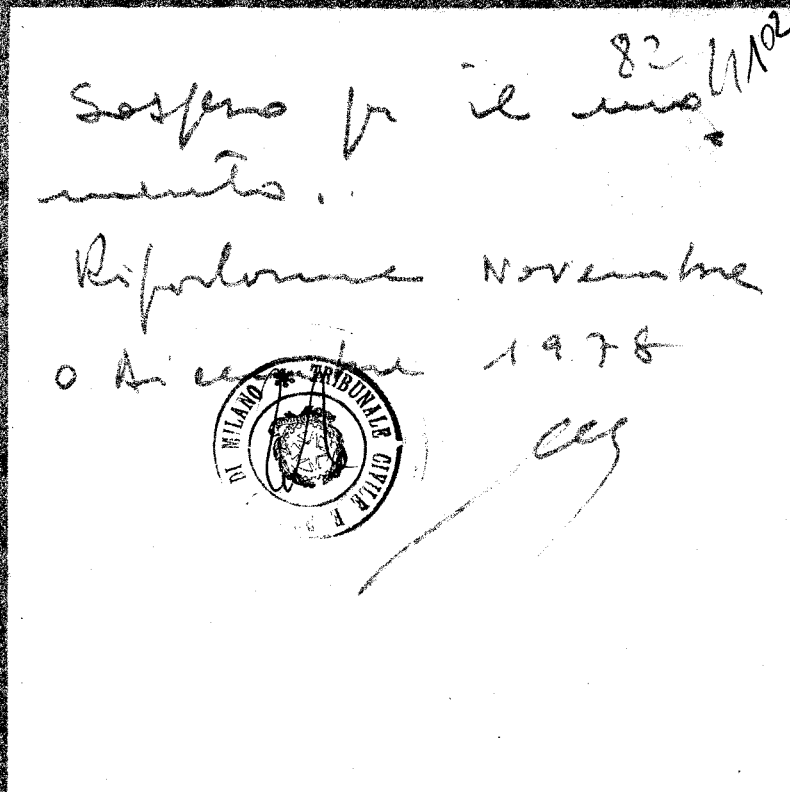 82 4102
Sospeso per il mo
mento..
Riparlarne Novembre
o Dicembre 1978
TRIBUNALE CIVILE E
DI MILANO